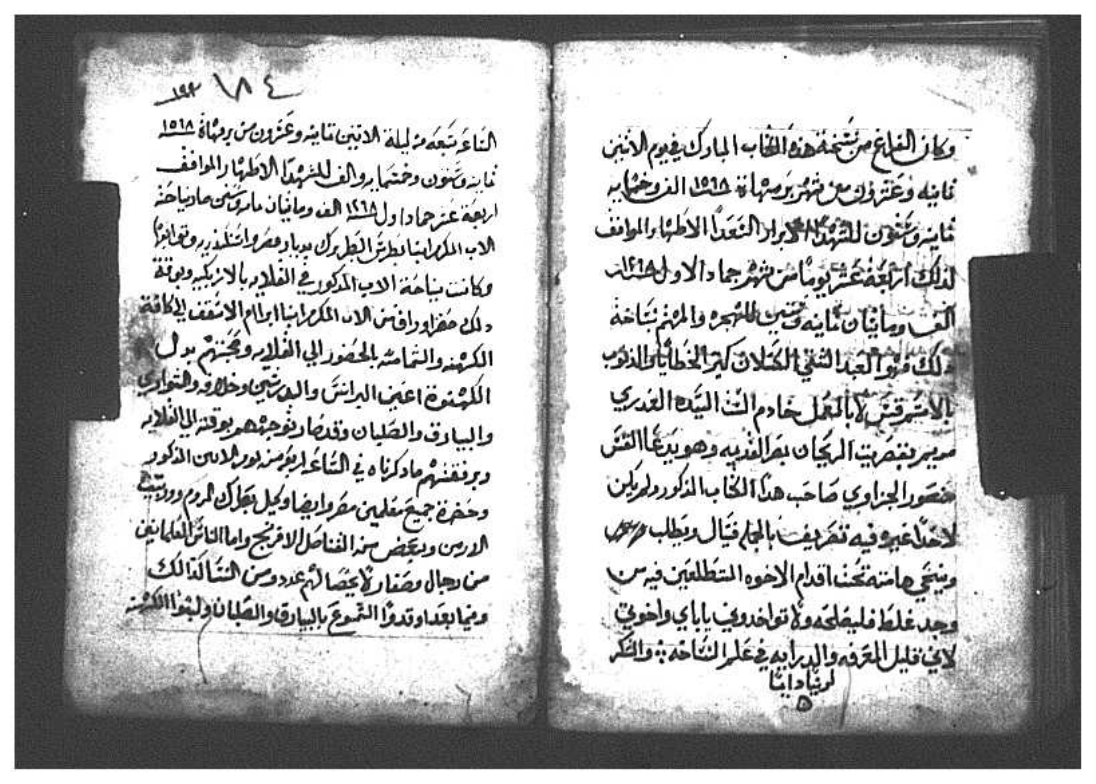 وكان الفراغ من نسخة هذا الكتاب المبارك في يوم الاثنين
ثمانيه وعشرون من شهر برمهاة ١٥٦٨ الف وخمسمايه
ثمانيه وستون للشهدا الابرار السعدا الاطهار الموافق
لذلك اربعة عشر يوما من شهر جماد الاول ١٢٦٨
الف ومايتان ثمانيه وستين للهجره والمهتم بنساخة
ذلك فهو العبد الشقي الكسلان كتير الخطايا والذنوب
بالاسم قس لا بالعمل خادم الست السيده العدري
مريم بقصرية الريحان بمصر القديمه وهو يدعا القس
منصور الجزاوي صاحب هذا الكتاب المذكور ولم يكن
لاحدا غيره فيه تصريف بالجمله قيال ويطلب
وينحي هامته تحت اقدام الاخوه المتطلعين فيه من
وجد غلط فليصلحه ولا تواخدوني ياباي واخوتي
لاني قليل المعرفه والدرايه في علم النساخه والشكر
لربنا دايما
١٩٣ ١٨٤
الساعه تسعه من ليلة الاتنين تمانيه وعشرون من برمهاة ١٥٦٨
تمانيه وستون وخمسمايه والف للشهدا الاطهار الموافق
اربعة عشر جماد اول ١٢٦٨ الف ومايتان تمانيه وستين صار نياحة
الاب المكرم انبا بطرس البطريرك بديار مصر واسكندريه وتوابعها
وكانت نياحة الاب المذكور في القلايه بالازبكيه وبوقتة
ذلك حضرا ورافس الاب المكرم انبا ابرام الاسقف الي كافة
الكهنه والشمامسه بالحضور الي القلايه وصحبتهم بدل
الكهنوة اعني البرانس والبدرشين وخلافه والشواري
والبيارق والصلبان وقد صار توجههم بوقته الي القلايه
وبرفقتهم ما ذكرناه في الساعه اربعه من يوم الاتنين المذكور
وحضرة جميع معلمين مصر وايضا وكيل بطرك الروم وورتبيت
الارمن وبعض من القناصل الافرنج واما الناس العلمانيين
من رجال وصغار لا يحصا لهم عدد ومن النسا كذالك
وفيما بعد اوقدوا الشموع بالبيارق والصلبان ولبسوا الكهنه